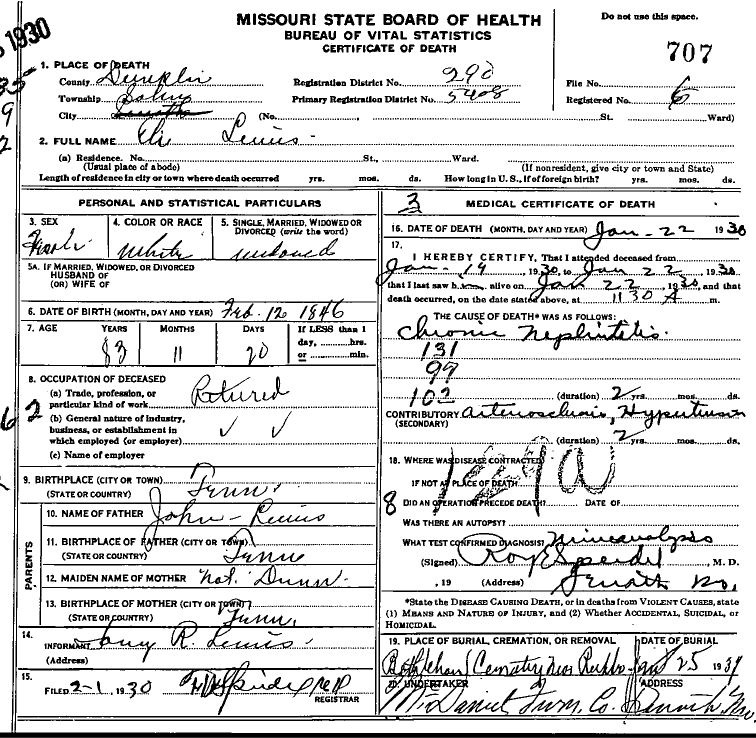 1930
MISSOURI STATE BOARD OF HEALTH
BUREAU OF VITAL STATISTICS
CERTIFICATE OF DEATH
Do not use this space.
707
1. PLACE OF DEATH
County Dunklin
Registration District No. 290
File No.
Township Salem
Primary Registration District No. 5408
Registered No. 6
City (No. St. Ward)
2. FULL NAME Eli Lewis
(a) Residence. No. St., Ward.
(Usual place of abode) (If nonresident, give city or town and State)
Length of residence in city or town where death occurred yrs. mos. ds. How long in U. S., if of foreign birth? yrs. mos. ds.
PERSONAL AND STATISTICAL PARTICULARS
3. SEX
4. COLOR OR RACE White
5. SINGLE, MARRIED, WIDOWED OR DIVORCED (write the word) widowed
5A. IF MARRIED, WIDOWED, OR DIVORCED
HUSBAND OF
(OR) WIFE OF
6. DATE OF BIRTH (MONTH, DAY AND YEAR) Feb. 12 1846
7. AGE YEARS MONTHS DAYS If LESS than 1 day, hrs. or min.
83 11 20
8. OCCUPATION OF DECEASED
(a) Trade, profession, or particular kind of work Retired
(b) General nature of industry, business, or establishment in which employed (or employer) ✓ ✓
(c) Name of employer
9. BIRTHPLACE (CITY OR TOWN) Tenn.
(STATE OR COUNTRY)
PARENTS
10. NAME OF FATHER John Lewis
11. BIRTHPLACE OF FATHER (CITY OR TOWN) Tenn
(STATE OR COUNTRY)
12. MAIDEN NAME OF MOTHER Nat. Dunn
13. BIRTHPLACE OF MOTHER (CITY OR TOWN) Tenn.
(STATE OR COUNTRY)
14. INFORMANT R. Lewis
(Address)
15. FILED 2-1, 1930
REGISTRAR
3 MEDICAL CERTIFICATE OF DEATH
16. DATE OF DEATH (MONTH, DAY AND YEAR) Jan - 22 1930
17.
I HEREBY CERTIFY, That I attended deceased from
Jan - 19, 1930, to Jan 22, 1930
that I last saw h alive on Jan 22, 1930, and that
death occurred, on the date stated above, at 11 30 A m.
THE CAUSE OF DEATH* WAS AS FOLLOWS:
Chronic Nephritis
131
99
102
(duration) 2 yrs. mos. ds.
CONTRIBUTORY Arteriosclerosis, Hypertension
(SECONDARY)
(duration) 2 yrs. mos. ds.
18. WHERE WAS DISEASE CONTRACTED
129a
IF NOT AT PLACE OF DEATH
8 DID AN OPERATION PRECEDE DEATH? DATE OF
WAS THERE AN AUTOPSY?
WHAT TEST CONFIRMED DIAGNOSIS? Urineanalysis
(Signed) Roy E Speidel, M. D.
, 19 (Address) Senath Mo.
*State the DISEASE CAUSING DEATH, or in deaths from VIOLENT CAUSES, state (1) MEANS AND NATURE OF INJURY, and (2) Whether ACCIDENTAL, SUICIDAL, or HOMICIDAL.
19. PLACE OF BURIAL, CREMATION, OR REMOVAL
DATE OF BURIAL
Cemetery Near 25 19
20. UNDERTAKER ADDRESS
McDaniel Furn. Co. Senath Mo.